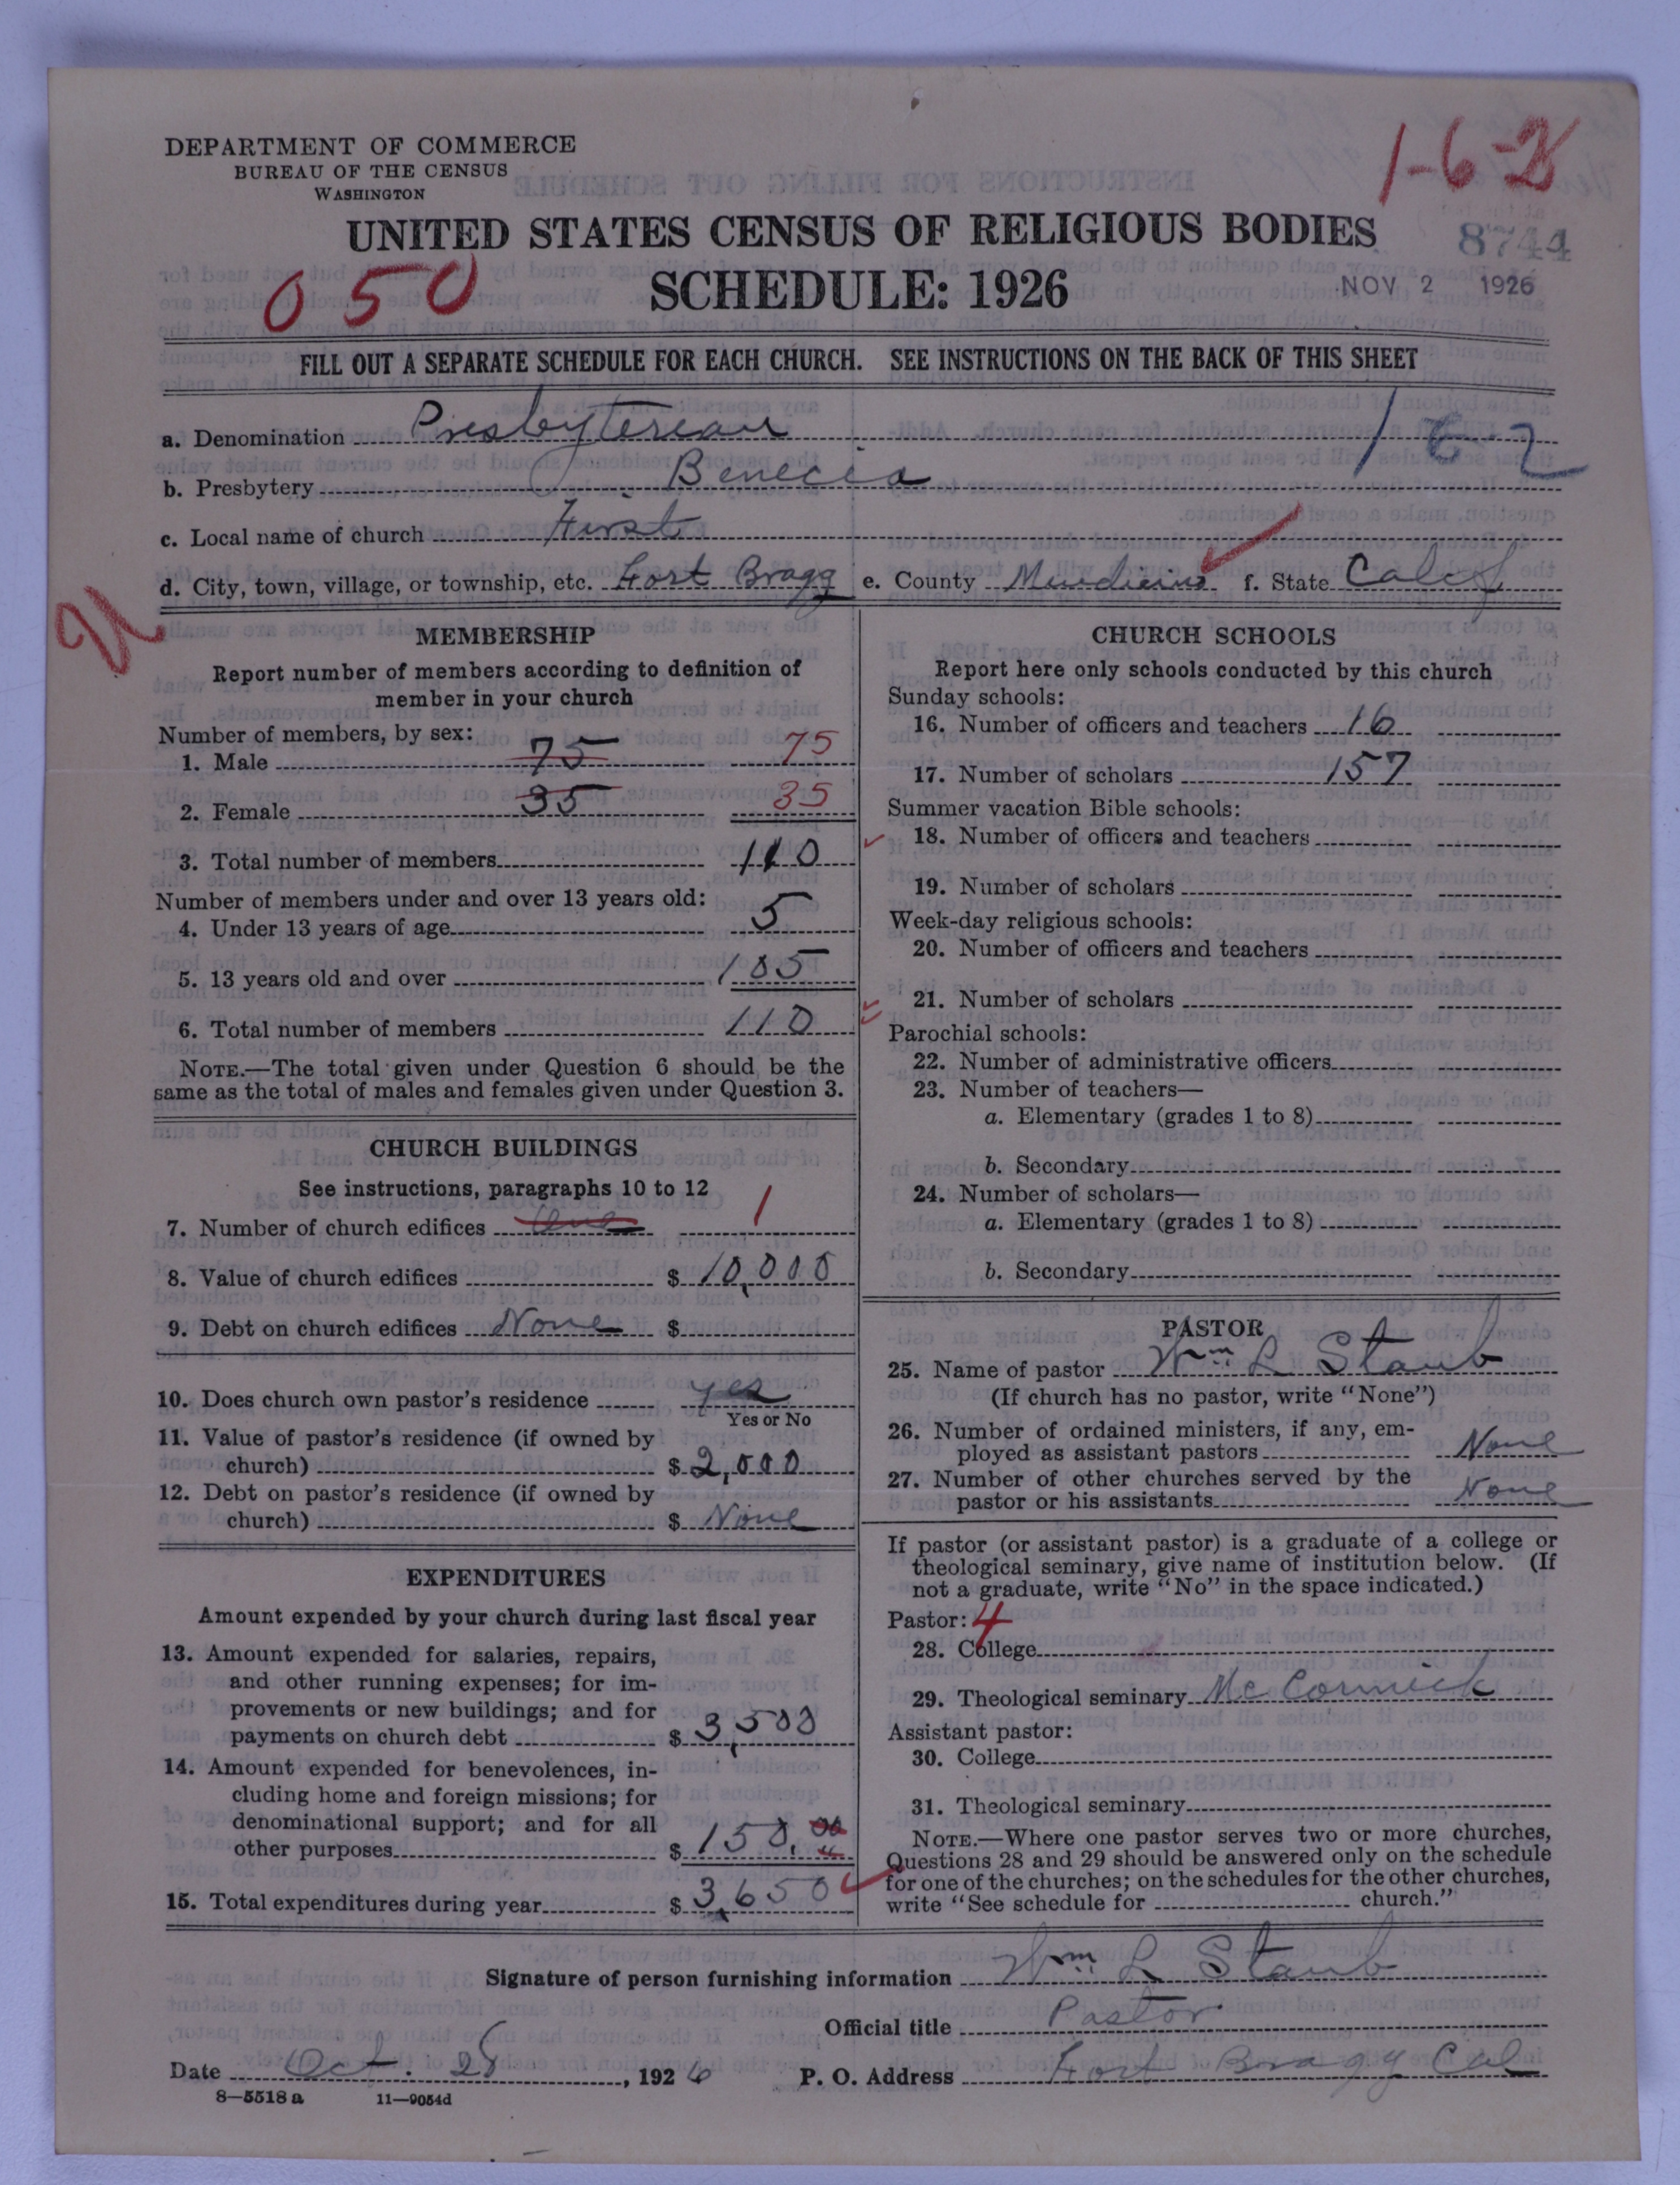 DEPARTMENT OF COMMERCE
BUREAU OF THE CENSUS
WASHINGTON
1-6-2
UNITED STATES CENSUS OF RELIGIOUS BODIES
8744
050
SCHEDULE: 1926
NOV 2 1926
FILL OUT A SEPARATE SCHEDULE FOR EACH CHURCH. SEE INSTRUCTIONS ON THE BACK OF THIS SHEET
a. Denomination Presbyterean 162
b. Presbytery Benecia
c. Local name of church First
d. City, town, village, or township, etc. Fort Bragg e. County f. State Calif
MEMBERSHIP
Report number of members according to definition of
member in your church
Number of members, by sex:
1. Male 75 75
2. Female 35 35
3. Total number of members 110
Number of members under and over 13 years old:
4. Under 13 years of age 5
5. 13 years old and over 105
6. Total number of members 110
NOTE.—The total given under Question 6 should be the
same as the total of males and females given under Question 3.
CHURCH BUILDINGS
See instructions, paragraphs 10 to 12
7. Number of church edifices One 1
8. Value of church edifices $ 10,000
9. Debt on church edifices None $
10. Does church own pastor's residence yes
Yes or No
11. Value of pastor's residence (if owned by
church) $ 2,000
12. Debt on pastor's residence (if owned by
church) $ None
EXPENDITURES
Amount expended by your church during last fiscal year
13. Amount expended for salaries, repairs,
and other running expenses; for im-
provements or new buildings; and for
payments on church debt $ 3,500
14. Amount expended for benevolences, in-
cluding home and foreign missions; for
denominational support; and for all
other purposes $ 150.00
15. Total expenditures during year $ 3,650
CHURCH SCHOOLS
Report here only schools conducted by this church
Sunday schools:
16. Number of officers and teachers 16
17. Number of scholars 157
Summer vacation Bible schools:
18. Number of officers and teachers
19. Number of scholars
Week-day religious schools:
20. Number of officers and teachers
21. Number of scholars
Parochial schools:
22. Number of administrative officers
23. Number of teachers—
a. Elementary (grades 1 to 8)
b. Secondary
24. Number of scholars—
a. Elementary (grades 1 to 8)
b. Secondary
PASTOR
25. Name of pastor Wm L Staub
(If church has no pastor, write "None")
26. Number of ordained ministers, if any, em-
ployed as assistant pastors None
27. Number of other churches served by the
pastor or his assistants None
If pastor (or assistant pastor) is a graduate of a college or
theological seminary, give name of institution below. (If
not a graduate, write "No" in the space indicated.)
Pastor: 4
28. College
29. Theological seminary McCormick
Assistant pastor:
30. College
31. Theological seminary
NOTE.—Where one pastor serves two or more churches,
Questions 28 and 29 should be answered only on the schedule
for one of the churches; on the schedules for the other churches,
write "See schedule for church."
Signature of person furnishing information Wm L Staub
Official title Pastor
Date Oct. 28, 1926 P. O. Address Fort Bragg Cal
8—5518 a 11—9054d